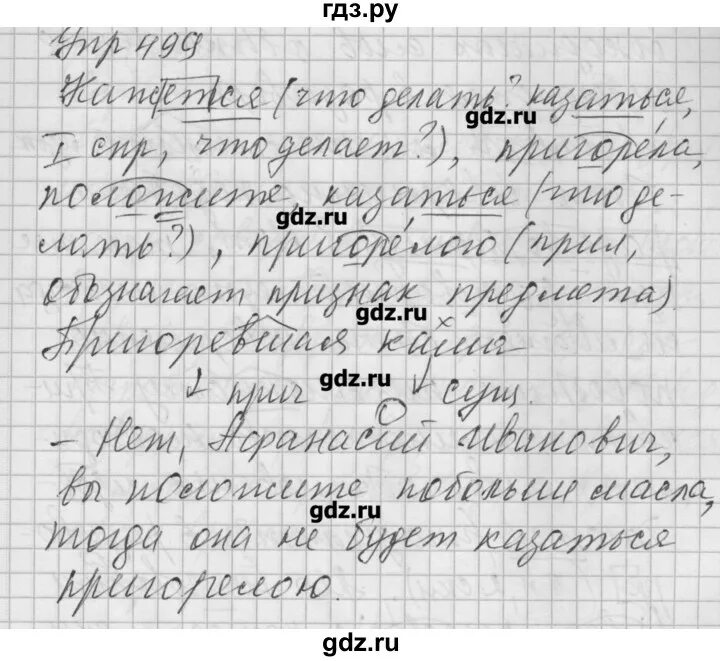 гдз.ру
Упр 499
Кажется (что делать? казаться,
gdz.ru
I спр, что делает?), пригорела,
положите, казаться (что де-
gdz.ru
лать?), пригорелою (прил,
обозначает признак предмета)
gdz.ru
Пригоревшая каша
gdz.ru
прич сущ.
- Нет, Афанасий Иванович,
вы положите побольше масла,
gdz.ru
тогда она не будет казаться
пригорелою.
gdz.ru